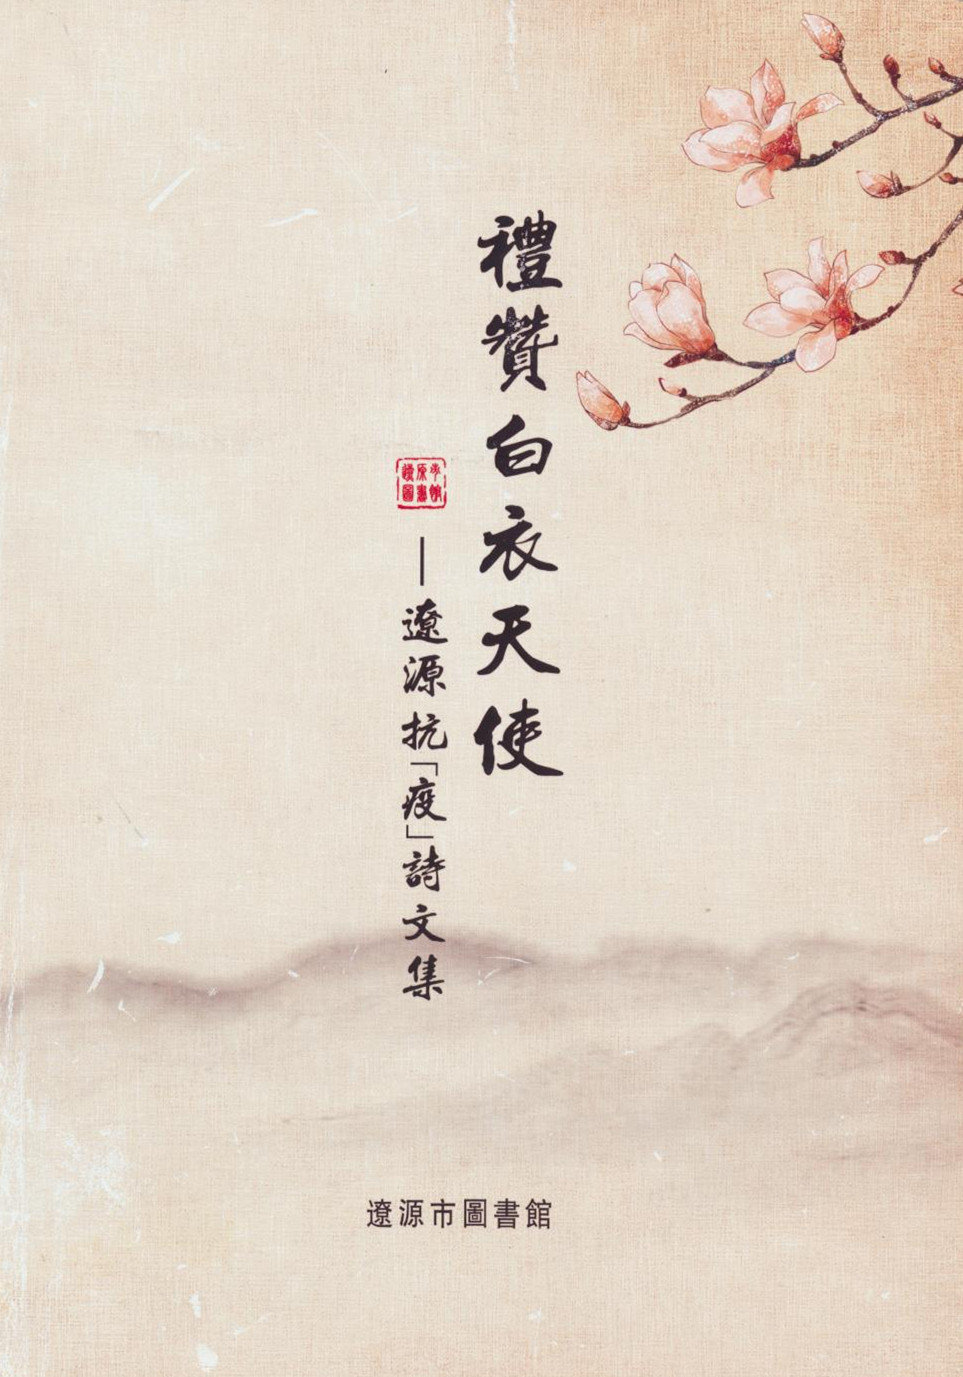 禮贊白衣天使
——遼源抗「疫」詩文集
遼源市圖書館